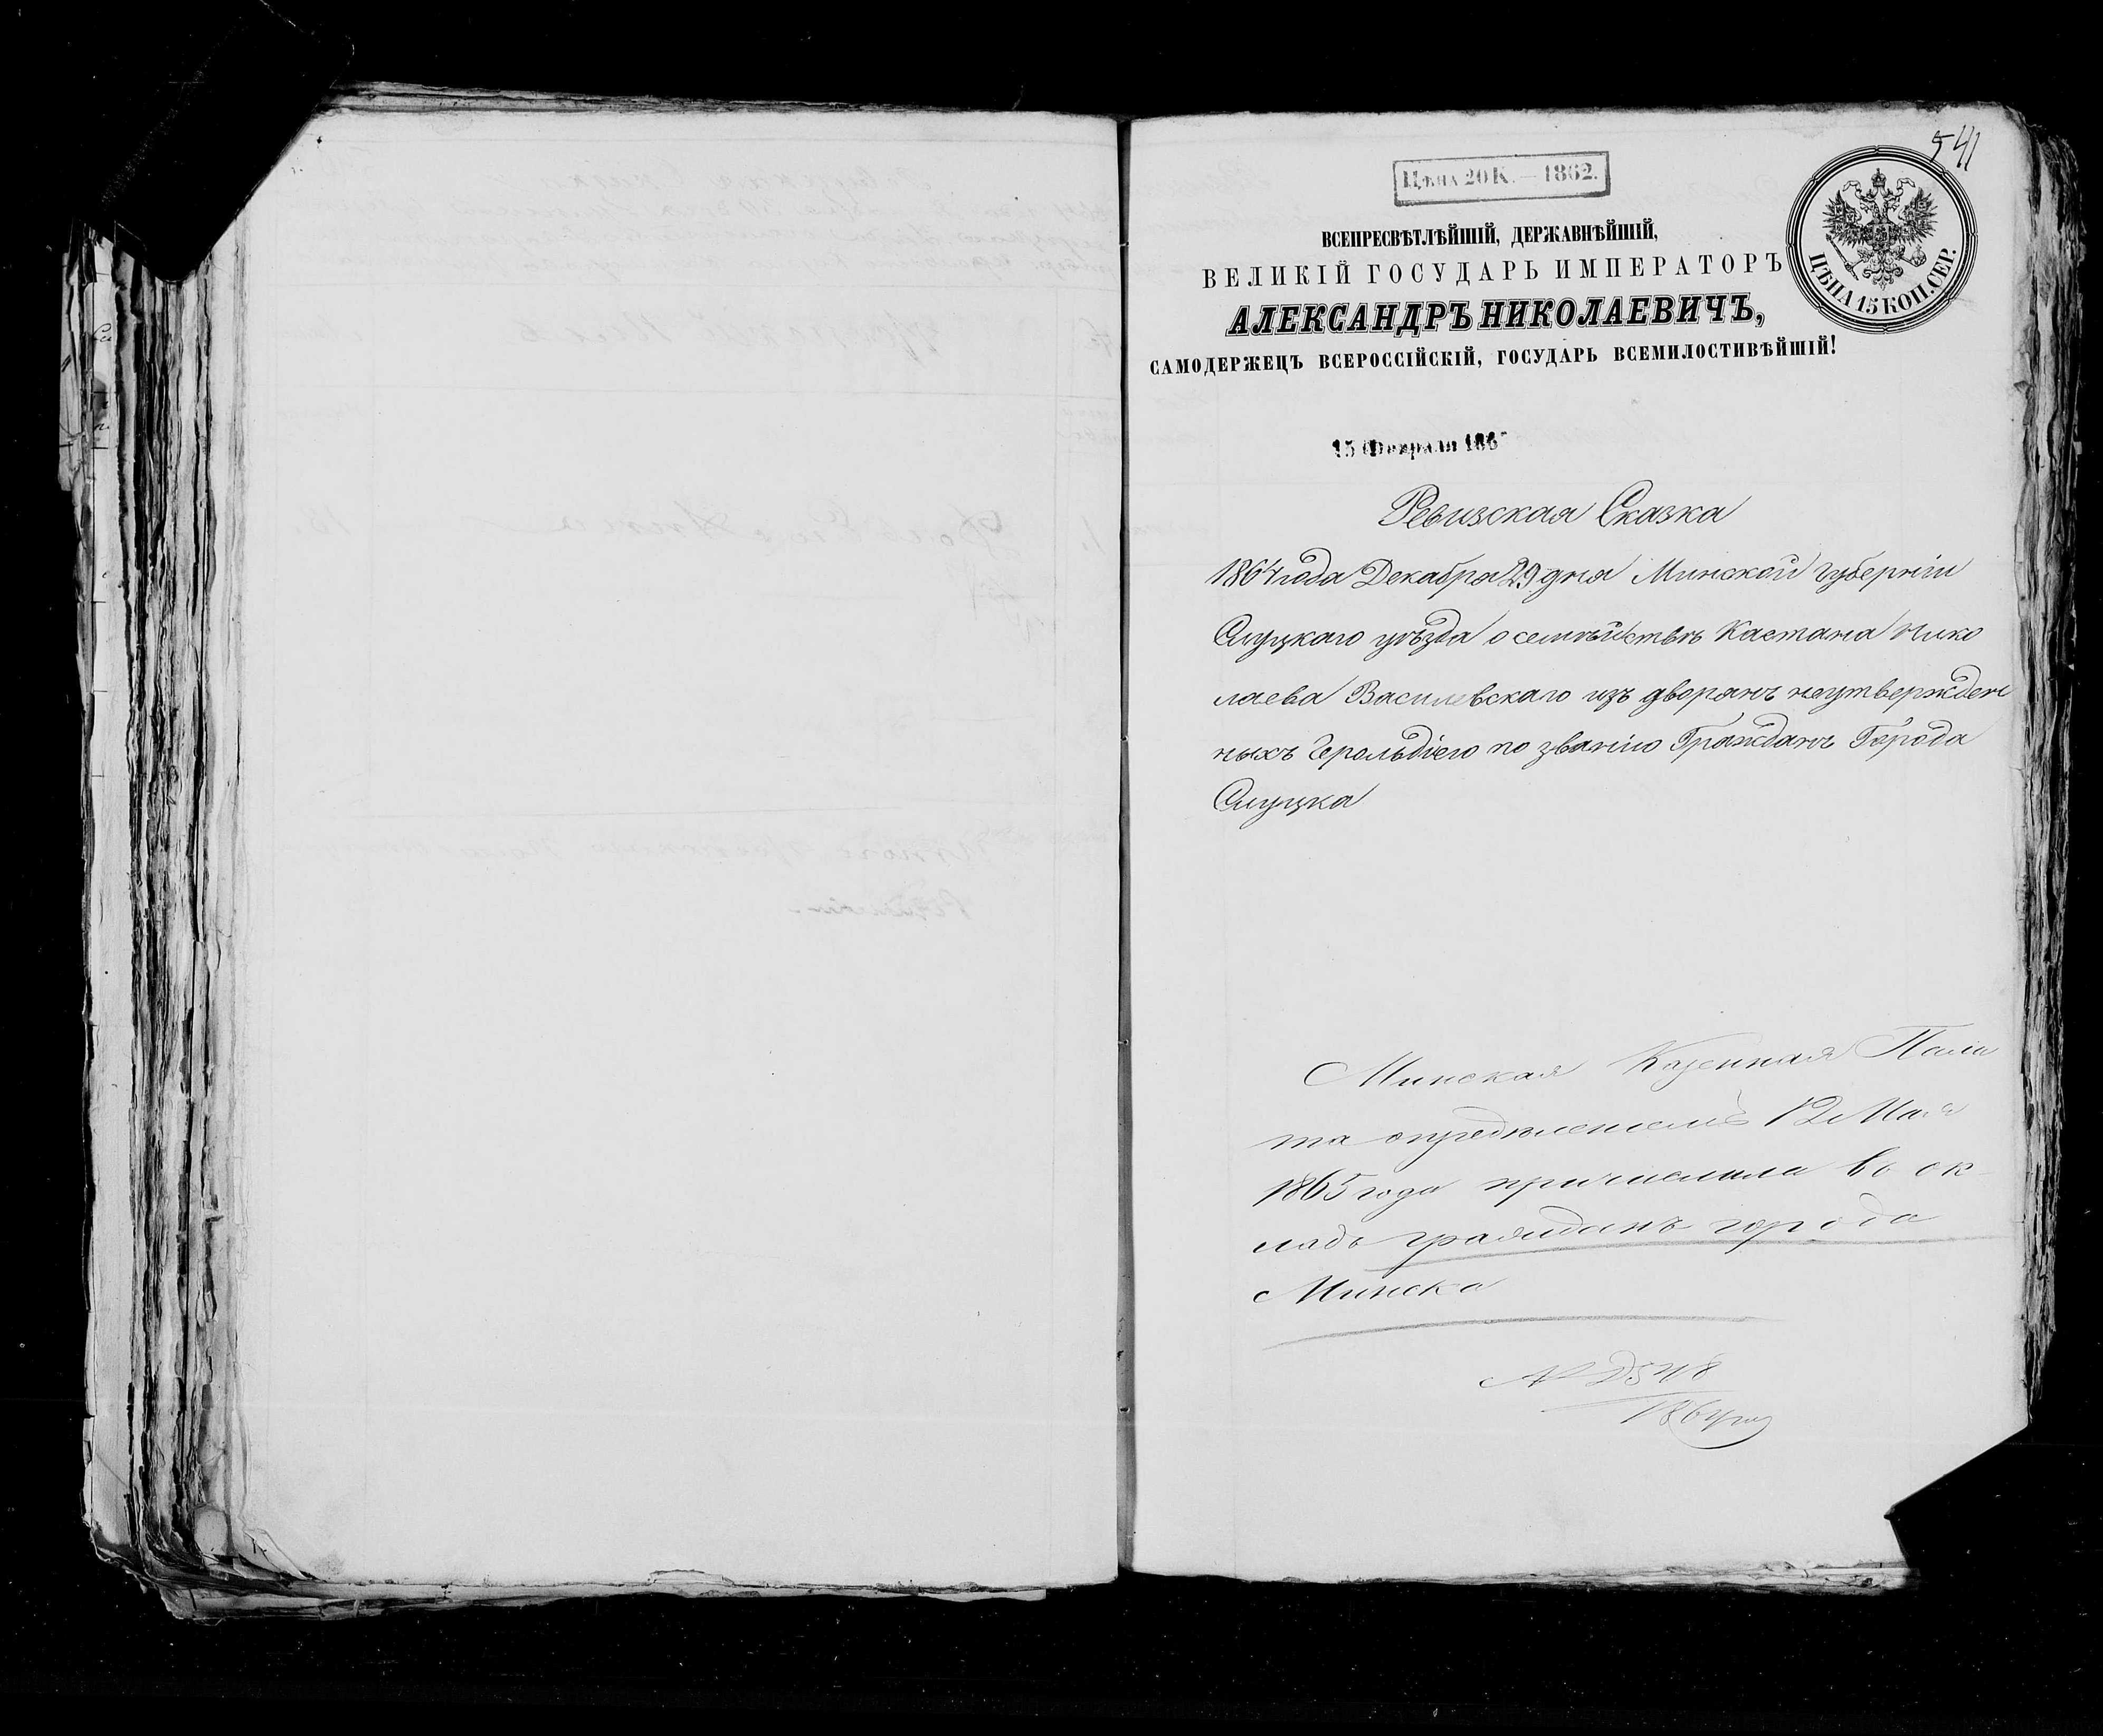 541
Цѣна 20 К. — 1862.
ЦѢНА 15 КОП. СЕР.
ВСЕПРЕСВѢТЛѢЙШІЙ, ДЕРЖАВНѢЙШІЙ,
ВЕЛИКІЙ ГОСУДАРЬ ИМПЕРАТОРЪ
АЛЕКСАНДРЪ НИКОЛАЕВИЧЪ,
САМОДЕРЖЕЦЪ ВСЕРОССІЙСКІЙ, ГОСУДАРЬ ВСЕМИЛОСТИВѢЙШІЙ!
15 Февраля 186
Ревизская Сказка
1864 года Декабря 29 дня Минской губерніи
Слуцкаго уѣзда о семѣйствѣ Каетана Нико
лаева Василевскаго изъ дворянъ неутвержден
ныхъ Герольдіею по званію Гражданъ Города
Слуцка
Минская Казенная Пала
та опредѣленіемъ 12 Мая
1865 года причислила въ ок
ладъ гражданъ города
Минска
№ 2548
1864 год